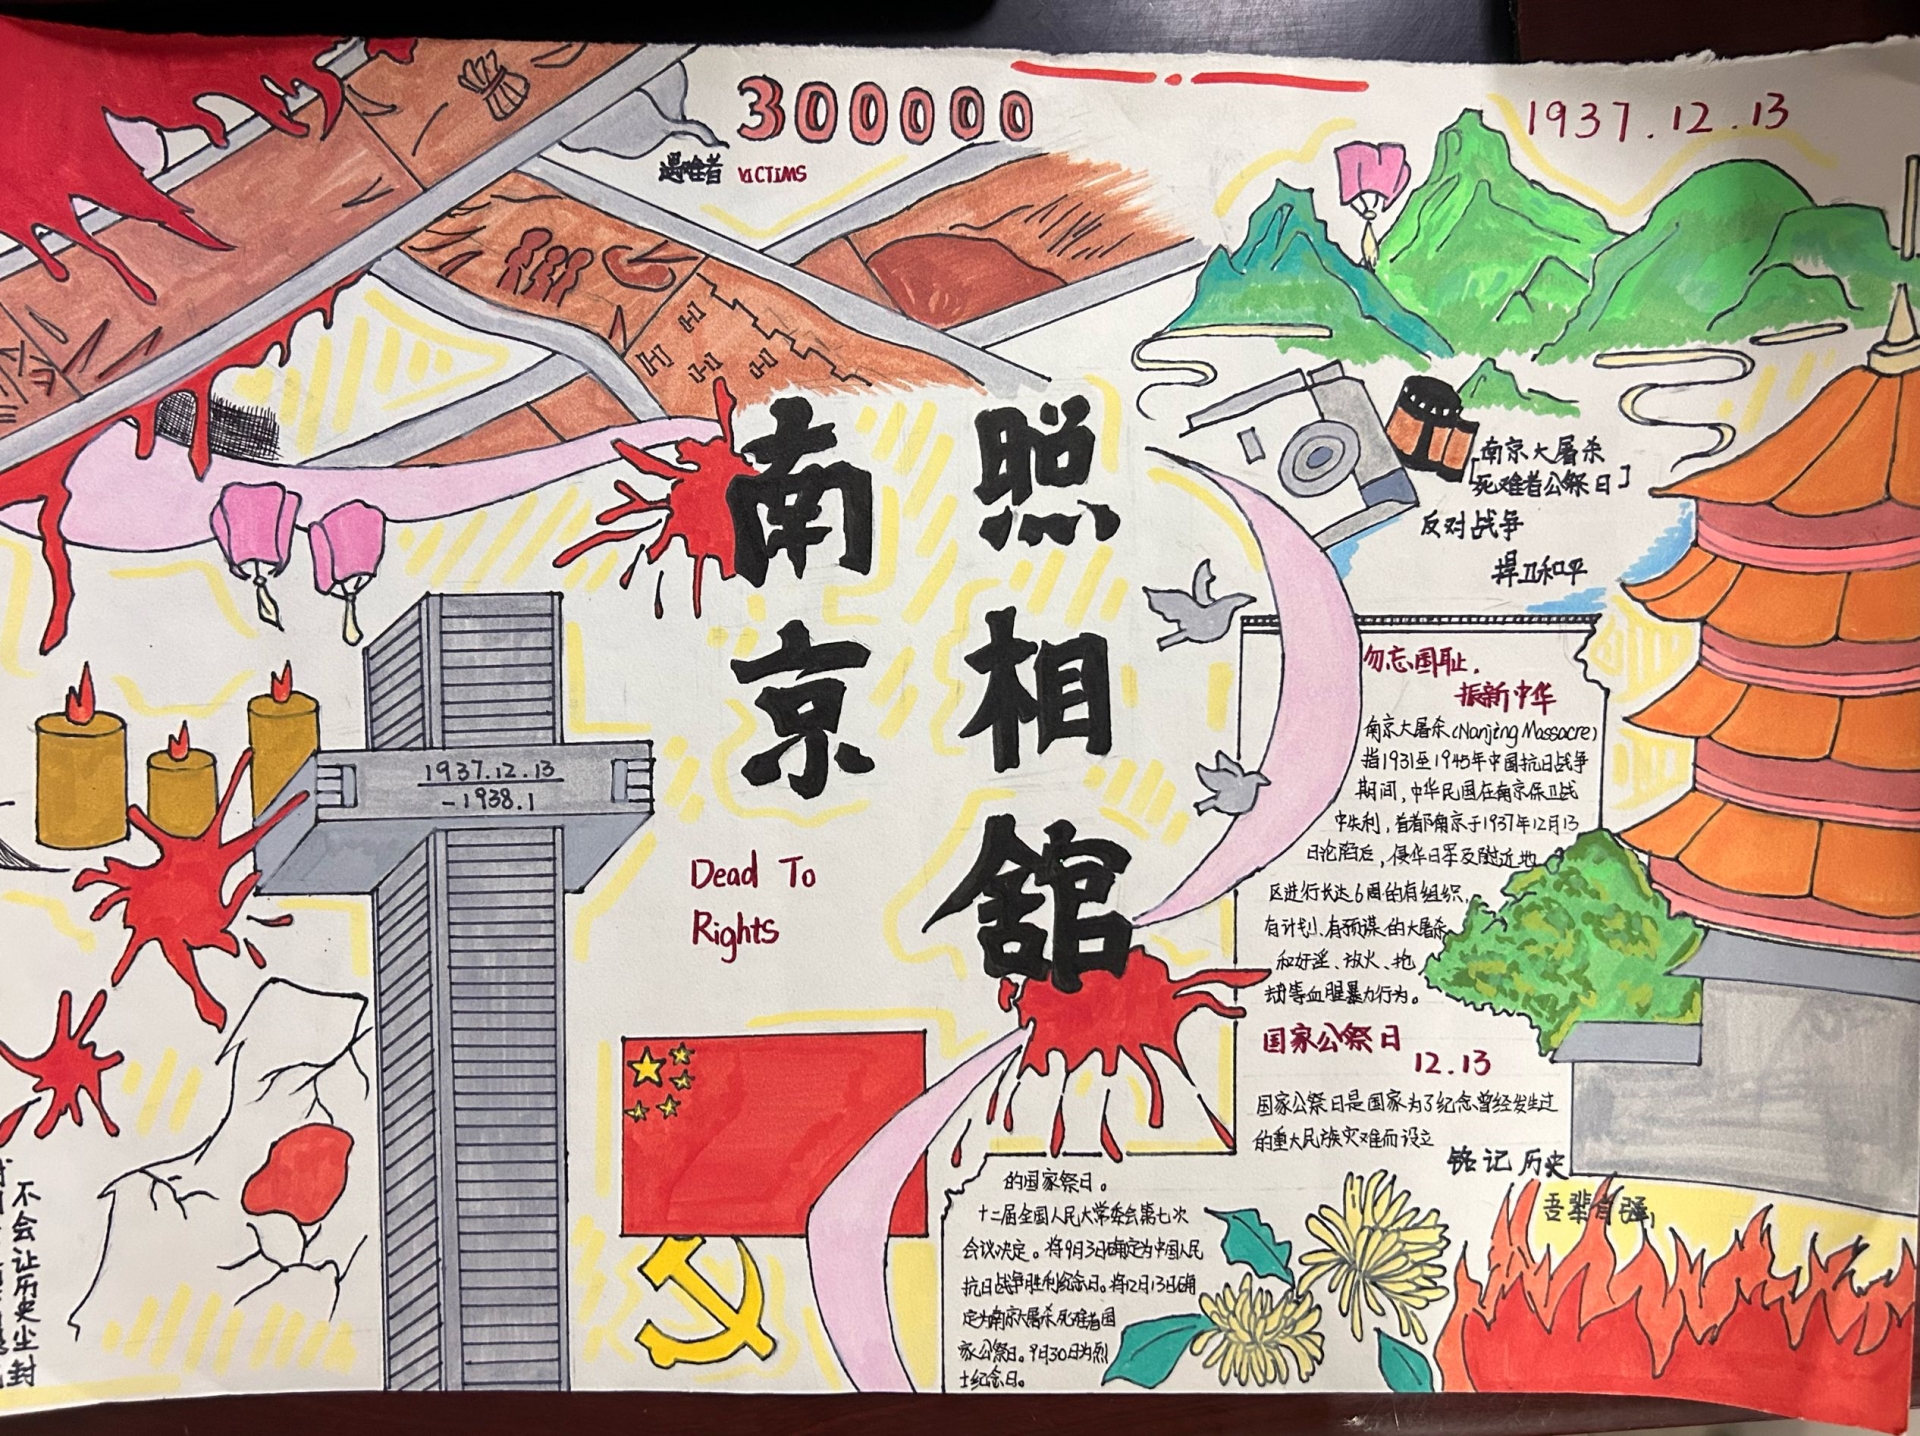 300000
遇难者 VICTIMS
1937.12.13
南京
照相馆
Dead To
Rights
1937.12.13
-1938.1
南京大屠杀
死难者公祭日
反对战争
捍卫和平
勿忘国耻,
振新中华
南京大屠杀(Nanjing Massacre)
指1931至1945年中国抗日战争
期间,中华民国在南京保卫战
中失利,首都南京于1937年12月13
日沦陷后,侵华日军及附近地
区进行长达6周的有组织,
有计划、有预谋的大屠杀
和奸淫、放火、抢
劫等血腥暴力行为。
国家公祭日
12.13
国家公祭日是国家为了纪念曾经发生过
的重大民族灾难而设立
的国家祭日。
十二届全国人民大常委会第七次
会议决定。将9月3日确定为中国人民
抗日战争胜利纪念日。将12月13日确
定为南京大屠杀死难者国
家公祭日。9月30日为烈
士纪念日。
铭记历史
吾辈自强,
不会让历史尘封